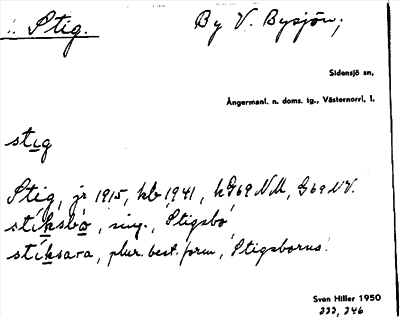 Stig. By V. Bysjön,
Sidensjö sn,
Ångermanl. n. doms. tg., Västernorrl. l.
stig
Stig, jr 1915, kb 1941, kG69NM, G69NV.
stíksbo, sing., 'Stigsbo'
stíksara, plur. best. form, 'Stigsborna'
Sven Hiller 1950
222, 246